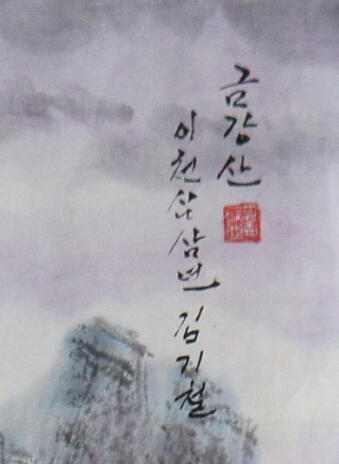 금강산
이천십삼년 김기철